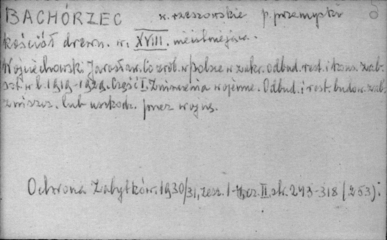 BACHÓRZEC w. rzeszowskie p. przemyski
kościół drewn. w. XVIII. nieistniejący.
Wojciechowski Jarosław. Co zrob. w Polsce w zakr. odbud. rest. i konserw. zab.
szt. w l. 1919-1929. Część I. Zniszczenia wojenne. Odbud. i rest. budow. zab.
zniszcz. lub uszkodz. przez wojnę.
Ochrona Zabytków. 1930/31, zesz. 1- cz. II, str. 243-318 (253).